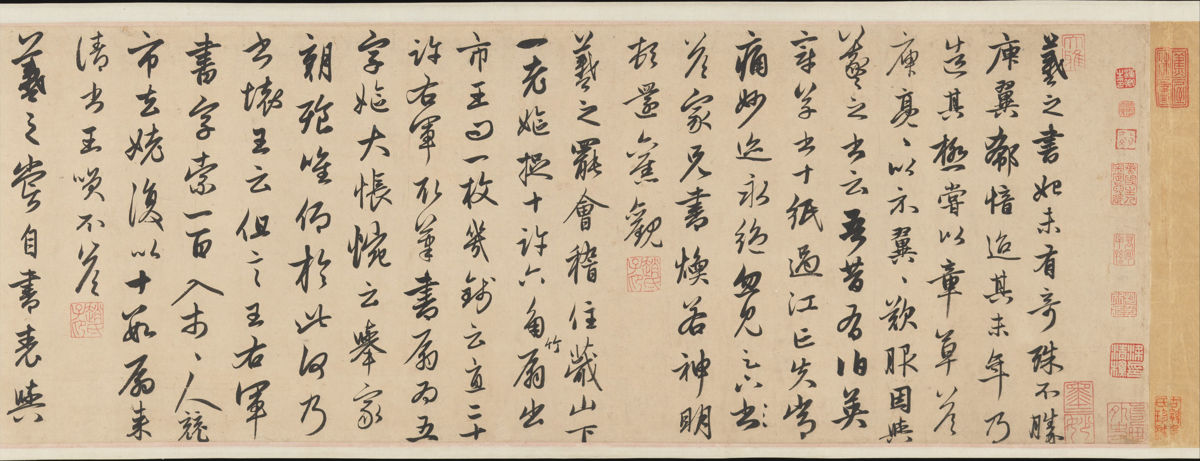 羲之書始未有奇殊不勝
庾翼郗愔迨其末年乃
造其極嘗以章草答
庾亮〻以示翼〻歎服因與
羲之書云吾昔有伯英
章草書十紙過江亡失常
痛妙迹永絕忽見足下書〻
答家兄書煥若神明
頓還舊觀
趙氏子昂
羲之罷會稽住蕺山下
一老嫗捉十許六角竹扇出
市王問一枚幾錢云直二十
許右軍取筆書扇為五
字嫗大悵惋云舉家
朝飱唯仰於此何乃
書壞王云但言王右軍
書字索一百入市〻人競
市去姥復以十數扇來
請書王笑不答
趙氏子昂
羲之嘗自書表與